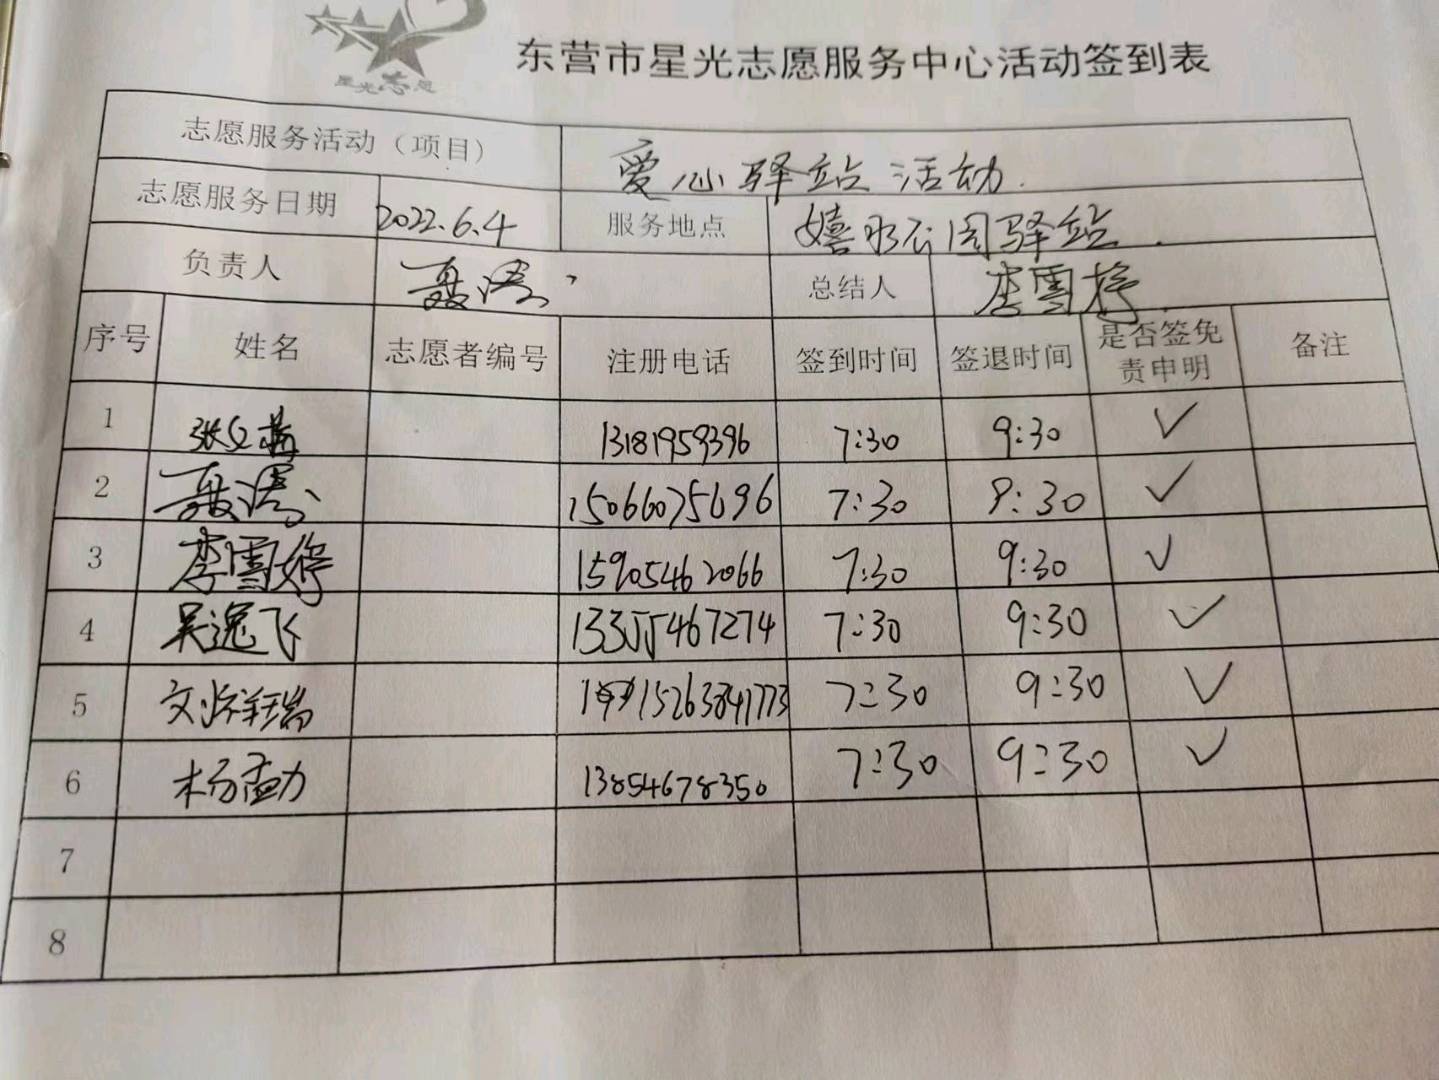 星光志愿
东营市星光志愿服务中心活动签到表
志愿服务活动（项目） 爱心驿站活动
志愿服务日期 2022.6.4 服务地点 嬉水公园驿站
负责人 聂涛 总结人 李雪婷
序号 姓名 志愿者编号 注册电话 签到时间 签退时间 是否签免责申明 备注
1 张文 13181959396 7:30 9:30 ✓
2 聂涛 15066075696 7:30 9:30 ✓
3 李雪婷 15905462066 7:30 9:30 ✓
4 吴逸飞 13355467274 7:30 9:30 ✓
5 15263841773 7:30 9:30 ✓
6 杨孟力 13854678350 7:30 9:30 ✓
7
8